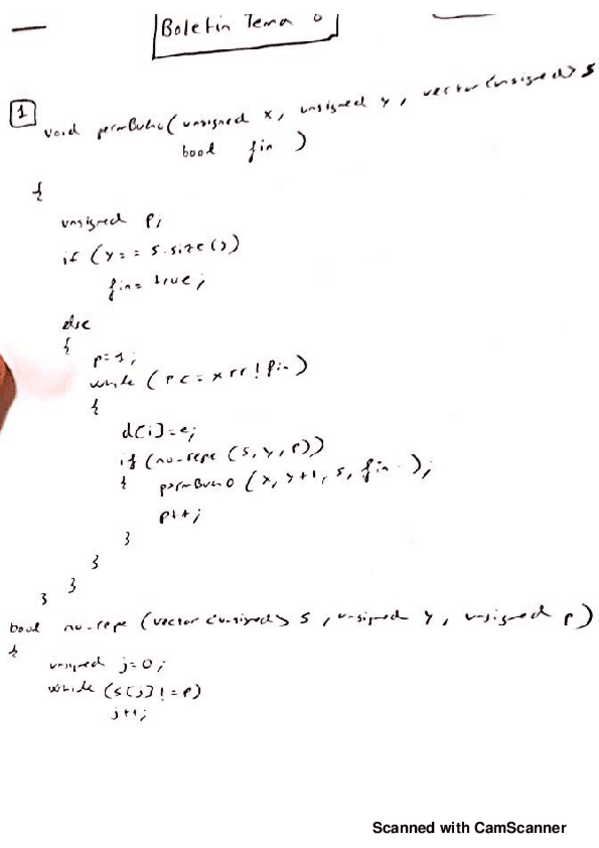 Boletín Tema
1
void permBueno(unsigned x, unsigned y, vector<unsigned> s
bool fin )
{
unsigned p;
if (y == s.size())
fin = true;
else
{
p=1;
while (p<=x && !fin)
{
d[i]=e;
if (no-repe (s,y,p))
{ permBueno (x, y+1, s, fin );
p++;
}
}
}
}
bool no-repe (vector <unsigned> s, unsigned y, unsigned p)
{
unsigned j=0;
while (s[j] != p)
j++;
Scanned with CamScanner